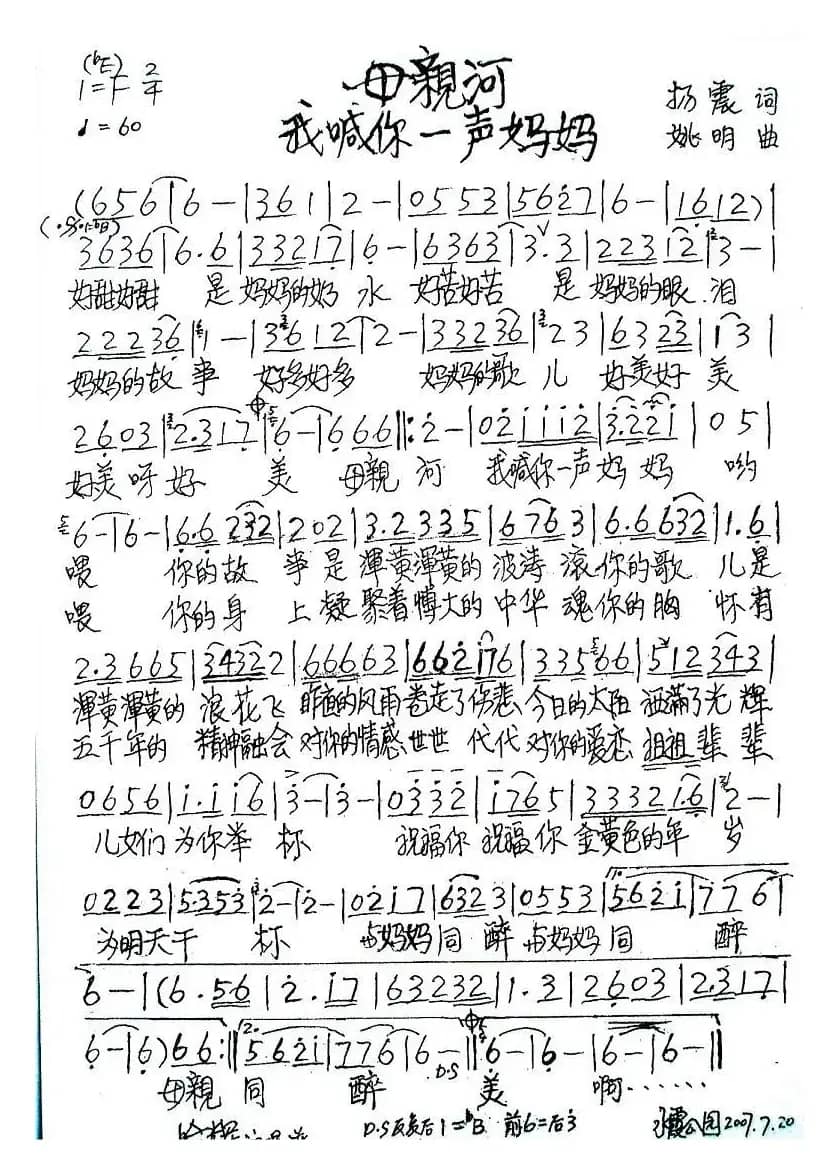 (♭E)
1=F 2/4
♩=60
母親河
我喊你一声妈妈
扬震词
姚明曲
(656|6-|361|2-|0553|5627|6-|1612)|
3636|6.6|33217|6-|6363|3.3|22312|3-|
好甜好甜 是妈妈的奶 水 好苦好苦 是妈妈的眼 泪
22236|1-|3612|2-|33236|23|6323|13|
妈妈的故 事 好多好多 妈妈的歌 儿 好美好 美
2603|2.317|6-|666||:2-|021112|3.221|05|
好美呀好 美 母親 河 我喊你一声妈 妈 哟
6-|6-|6.6232|202|3.2335|6763|6.6632|1.6|
喂 你的故 事是渾黄渾黄的波涛滚你的歌 儿是
喂 你的身 上凝聚着博大的中华魂你的胸 怀有
2.3665|34322|66663|662176|33566|512343|
渾黄渾黄的 浪花飞 昨夜的风雨卷走了伤悲今日的太阳 洒满了光 辉
五千年的 精神融会 对你的情感世世 代代对你的爱恋祖祖辈 辈
0656|1.116|3-|3-|0332|1765|333216|2-|
儿女们 为你举 杯 祝福你 祝福你 金黄色的年 岁
0223|5353|2-|2-|0217|6323|0553|5621|776|
为明天干 杯 与妈妈同 醉与妈妈同 醉
6-|(6.56|2.17|63232|1.3|2603|2.317|
6-|6)66:||5621|776|6-||6-|6-|6-|6-||
D.S
母親 同 醉 美 啊……
D.S反复后1=♭B 前6=后3
公园2007.7.20